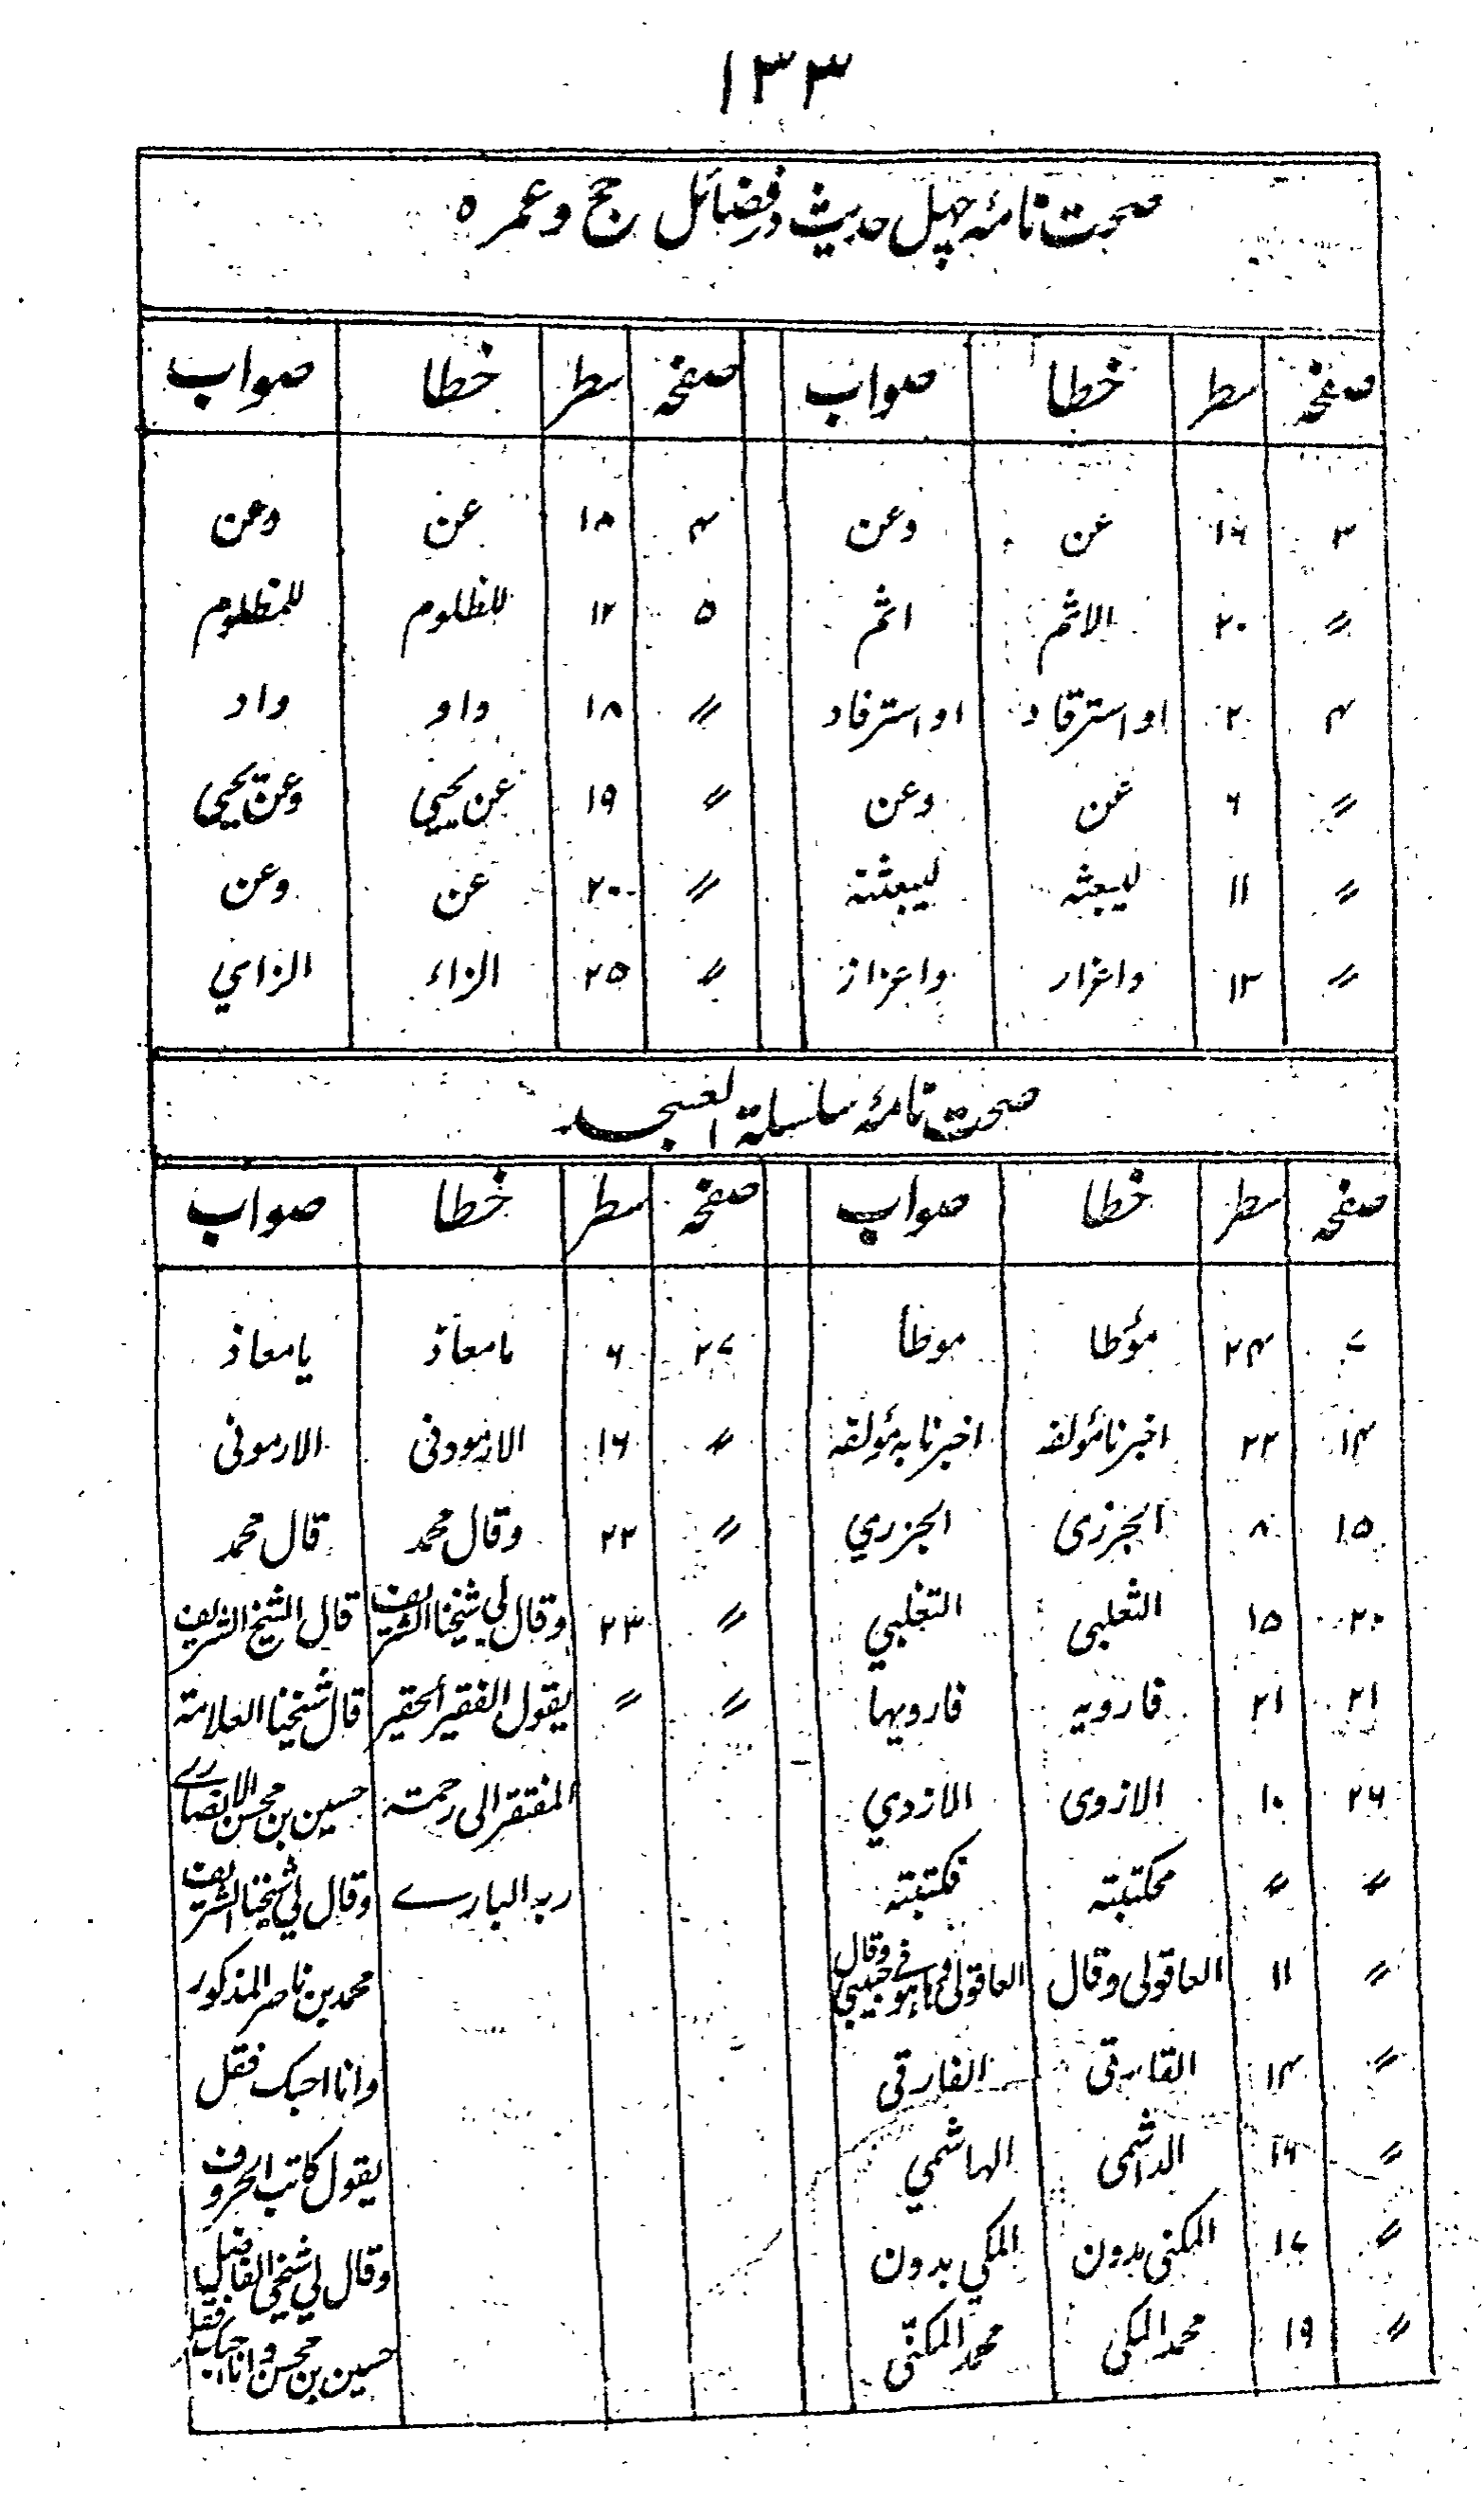 ۱۳۳
صحت نامۂ چہل حدیث در فضائل حج و عمرہ
صفحہ سطر خطا صواب صفحہ سطر خطا صواب
۳ ۱۶ عن وعن ۴ ۱۸ عن وعن
〃 ۲۰ الاثم اثم ۵ ۱۲ للظلوم للمظلوم
۴ ۲ او استرقاد او استرفاد 〃 ۱۸ داو واد
〃 ۶ عن وعن 〃 ۱۹ عن یحیی وعن یحیی
〃 ۱۱ لیبعثہ لیبعثنہ 〃 ۲۰ عن وعن
〃 ۱۳ واعزار واعزاز 〃 ۲۵ الزاء الزاي
صحت نامۂ سلسلة العسجد
صفحہ سطر خطا صواب صفحہ سطر خطا صواب
۷ ۲۴ مؤطا موطأ ۲۷ ۶ مامعاذ یامعاذ
۱۴ ۲۲ اخبرنا مؤلفہ اخبرنا بہ مؤلفہ 〃 ۱۶ الازمودنی الارمونی
۱۵ ۸ الجرزی الجزري 〃 ۲۲ وقال محمد قال محمد
۲۰ ۱۵ الثعلبی التغلبي 〃 ۲۳ وقال لي شیخنا الشریف قال الشیخ الشریف
۲۱ ۲۱ فارویہ فارویہا 〃 〃 یقول الفقیر الحقیر قال شیخنا العلامة
۲۶ ۱۰ الازوی الازدي المفتقر الی رحمتہ حسین بن محسن الانصارے
〃 〃 محکتبتہ فکتبتہ ربہ البارے وقال لي شیخنا الشریف
〃 ۱۱ العاقولی وقال العاقولی وقال محمد بن ناصر المذکور
〃 ۱۴ القارقی الفارقی وانا احبک فقل
〃 ۱۶ الداشمی الهاشمي یقول کاتب الحروف
〃 ۱۷ المکنی بدون المکي بدون وقال لي شیخي الفاضل
〃 ۱۹ محمد المکی محمد المکنّی حسین بن محسن وانا احبک فقل